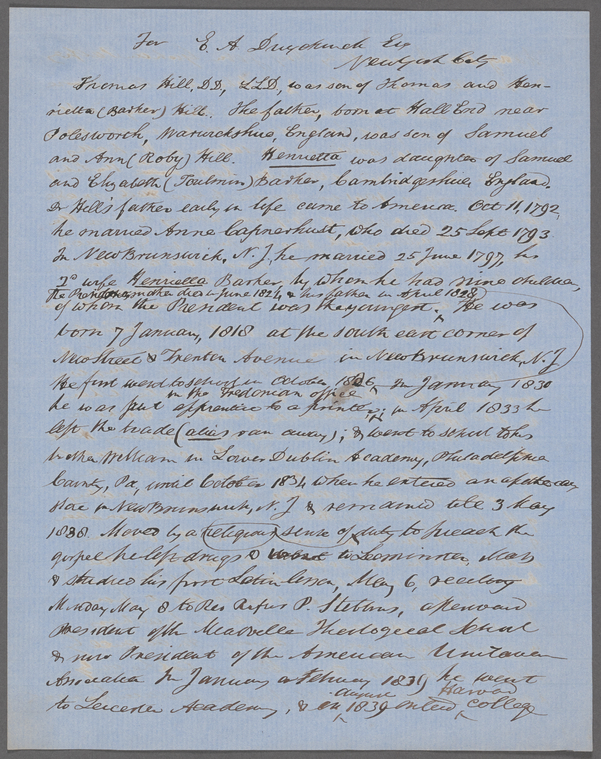 For E. A. Duyckinck Esq
New York City
Thomas Hill, D.D., LL.D., was son of Thomas and Hen-
rietta (Barker) Hill. The father, born at Hall End near
Polesworth, Warwickshire, England, was son of Samuel
and Ann (Roby) Hill. Henrietta was daughter of Samuel
and Elizabeth (Toulmin) Barker, Cambridgeshire, England.
Dr Hill's father early in life came to America. Oct 11, 1792,
he married Anne Caperhust, who died 25 Sept 1793
In New Brunswick, N. J, he married 25 June 1797, his
2d wife Henrietta Barker, by whom he had nine children,
The mother died in June 1824, & his father in April 1828
of whom the President was the youngest. He was
born 7 January, 1818 at the south east corner of
New Street & Trenton Avenue in New Brunswick, N. J
He first went to school in October 1826, In January 1830
in the Fredonian office
he was put apprentice to a printer; in April 1833 he
left the trade (alias ran away); & went to school to his
brother William in Lower Dublin Academy, Philadelphia
County, Pa, until October 1834 when he entered an apothecary
store in New Brunswick, N. J & remained till 3 May
1838. Moved by a religious sense of duty to preach the
gospel he left drugs & went to Leominster, Mass
& studied his first Latin lesson, May 6, reciting
Monday May 8 to Rev Rufus P. Stebbins, afterward
President of the Meadville Theological School
& now President of the American Unitarian
Association In January or February 1839 he went
august Harvard
to Leicester Academy, & in 1839 entered college